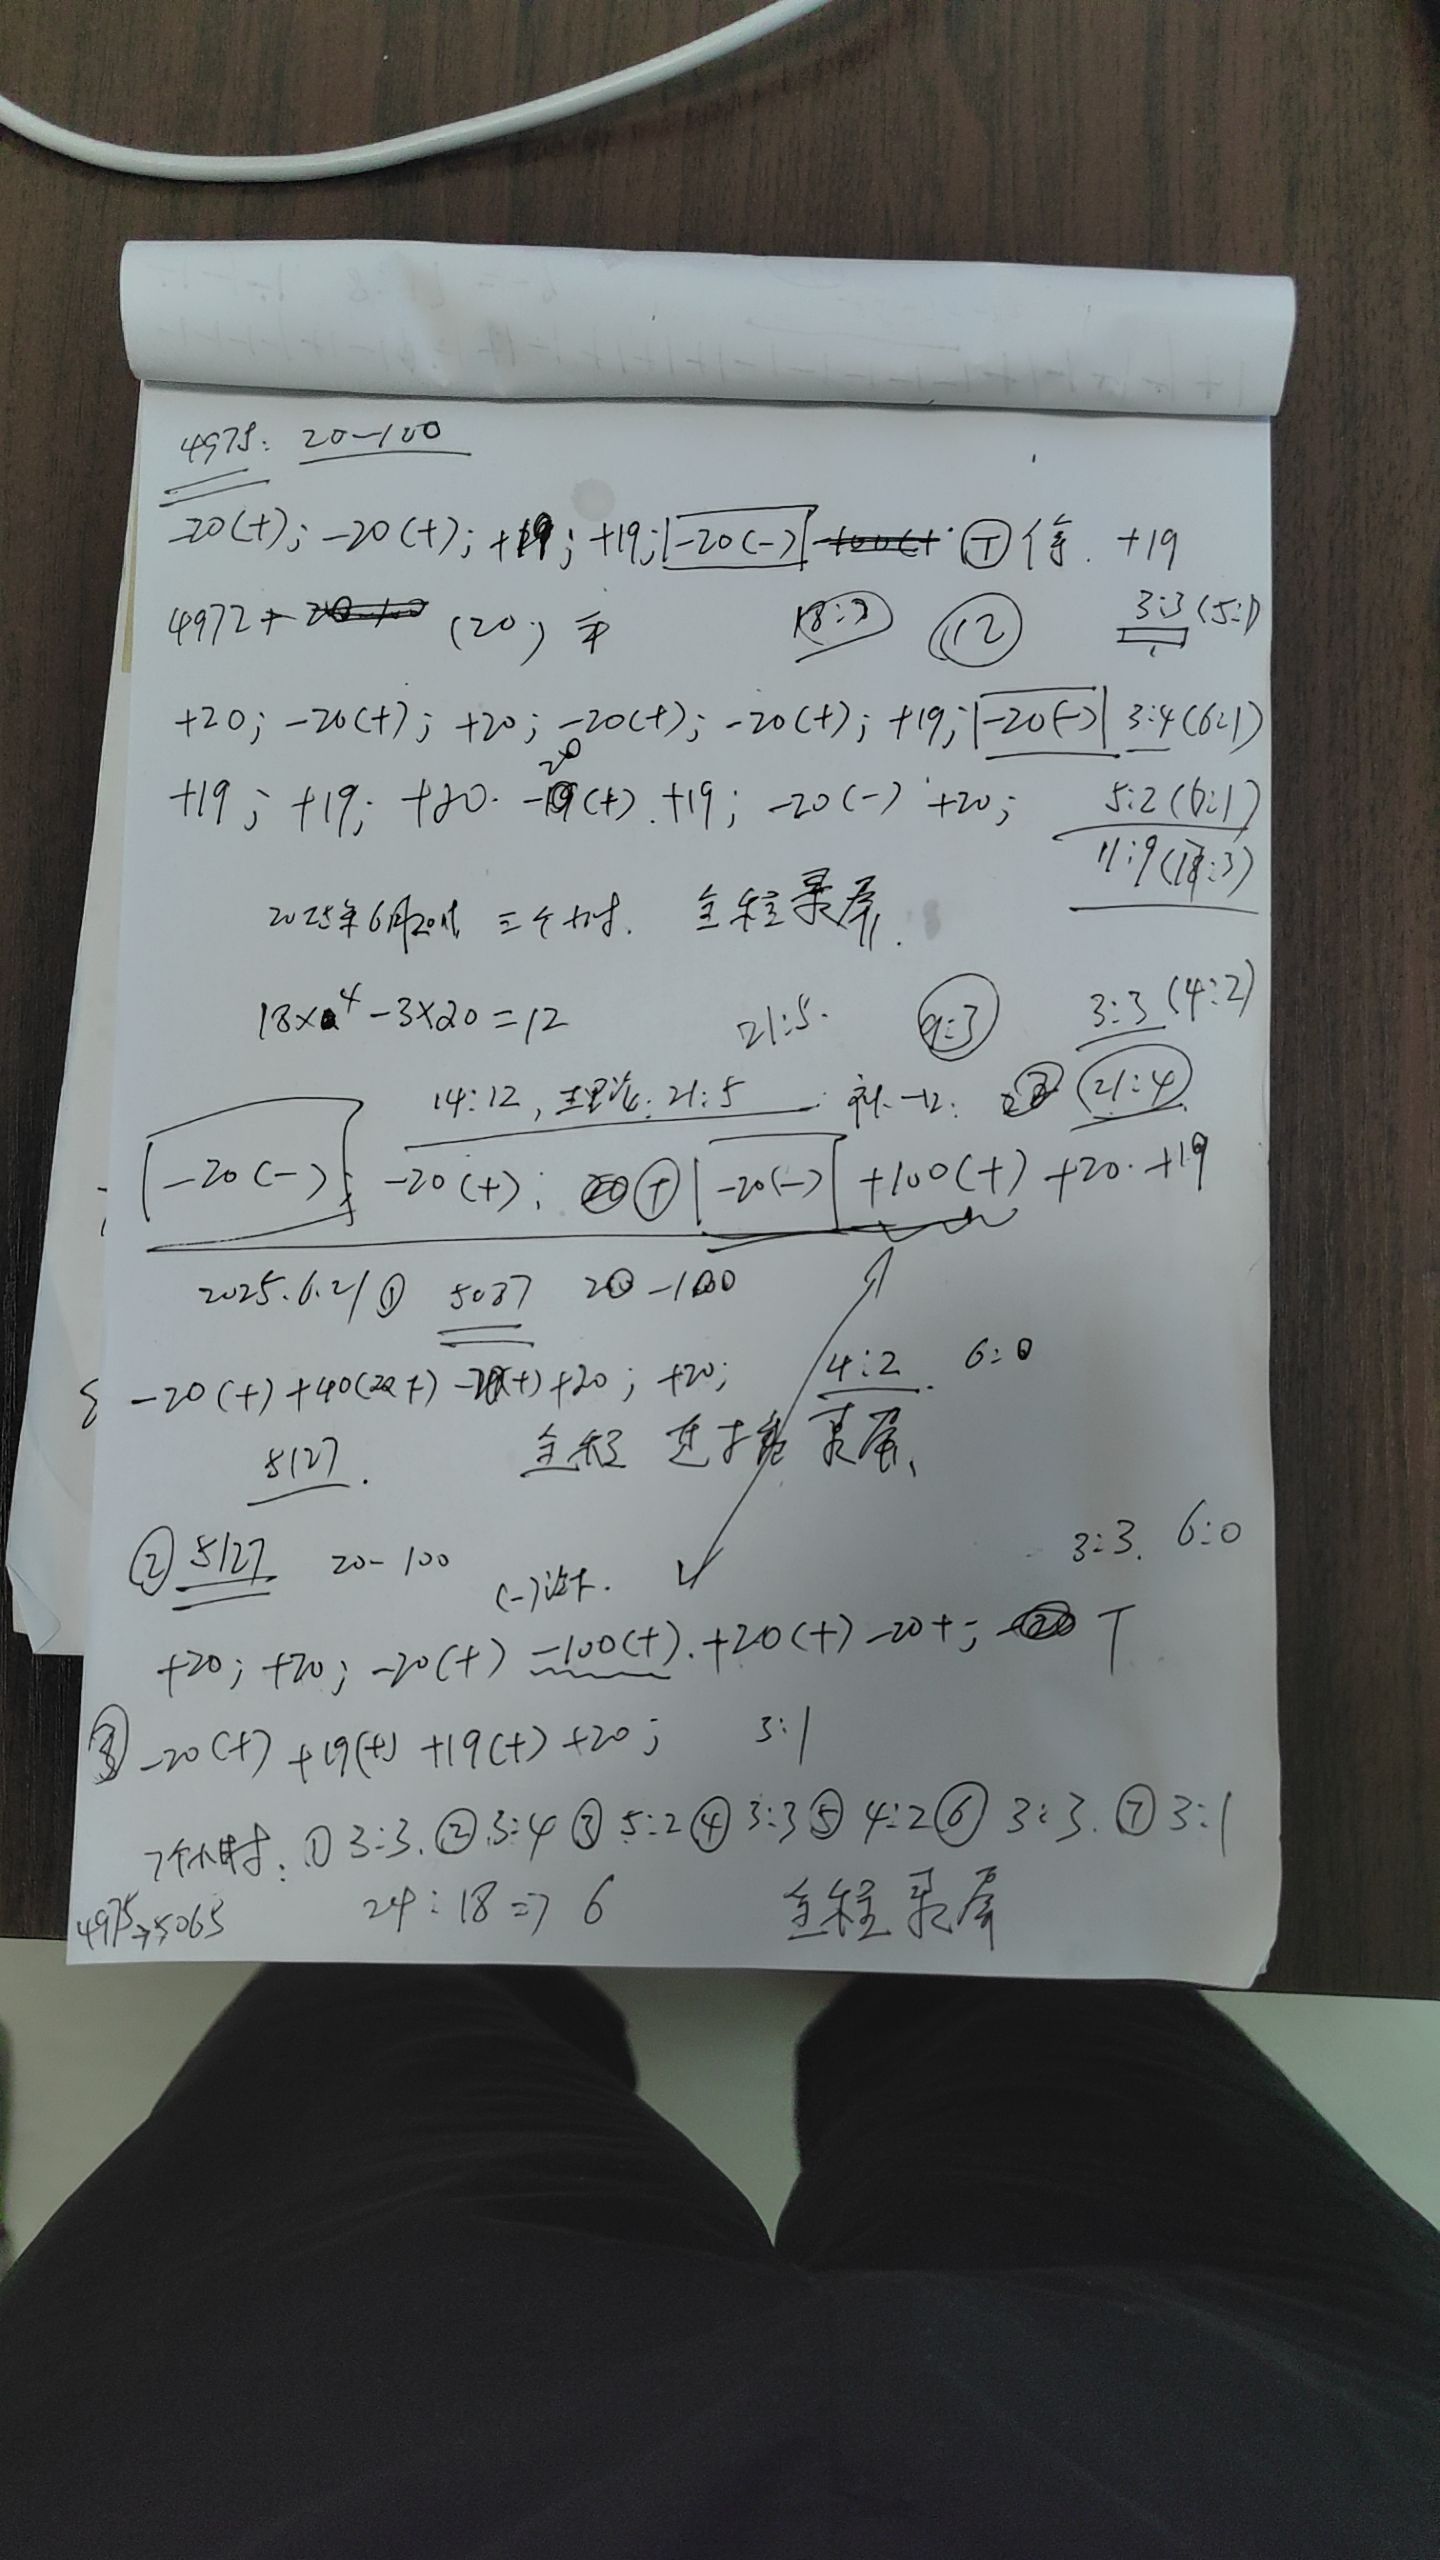 4975: 20-100
-20(+); -20(+); +19; +19; -20(-) T 停. +19
4972+ (20) 平 18:3 12 3:3(5:1)
+20; -20(+); +20; -20(+); -20(+); +19; -20(-) 3:4(6:1)
+19; +19; +20. -20(+). +19; -20(-) +20; 5:2(6:1)
11:9(17:3)
2025年6月20日 三个小时. 全程录屏.
18×4-3×20=12 21:5. 9:3 3:3(4:2)
14:12, 理论:21:5 补-12: 21:4
-20(-); -20(+); T -20(-) +100(+) +20. +19
2025.6.21 ① 5037 20-100
-20(+) +40(20+) -20(+) +20; +20; 4:2. 6:0
5127. 全程 录屏.
② 5127 20-100 3:3. 6:0
(-)
+20; +20; -20(+) -100(+). +20(+) -20+; T
③ -20(+) +19(+) +19(+) +20; 3:1
7个小时: ① 3:3. ② 3:4 ③ 5:2 ④ 3:3 ⑤ 4:2 ⑥ 3:3. ⑦ 3:1
4975→5065 24:18⇒6 全程录屏